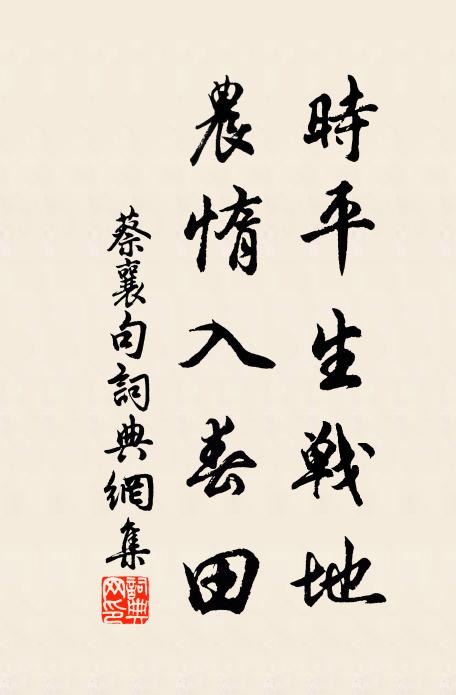 時平生戰地
農惰入春田
蔡襄句詞典網集
詞典網印